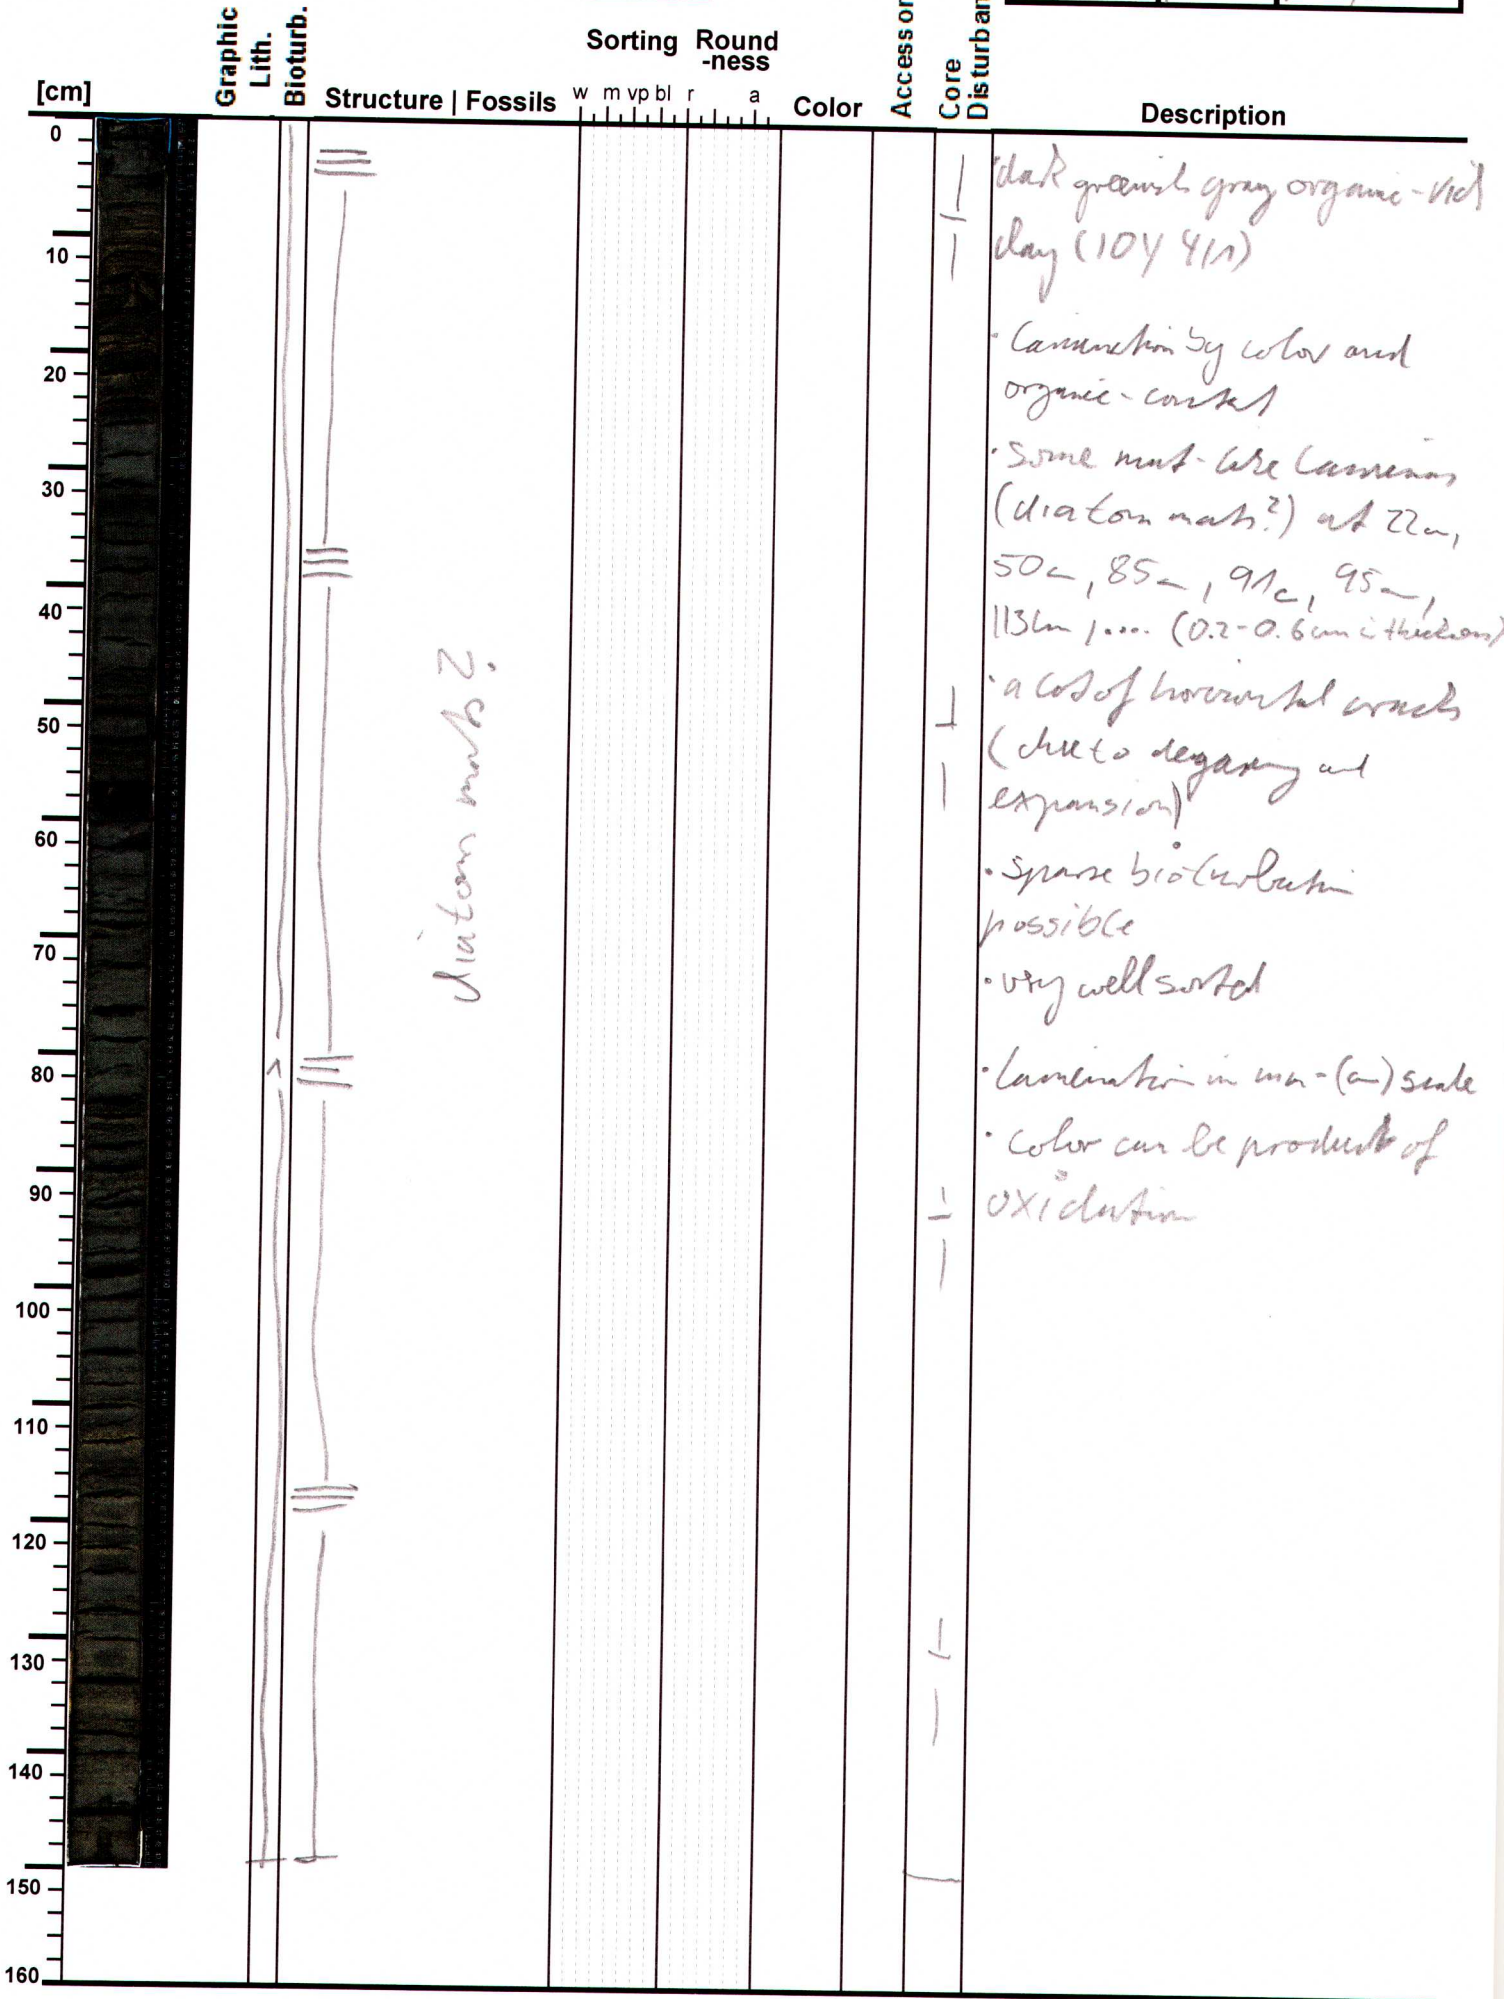 [cm]
Graphic
Lith.
Bioturb.
Structure | Fossils
Sorting Round
-ness
w m vp bl r a
Color
Core
Disturban
Description
0
10
20
30
40
50
60
70
80
90
100
110
120
130
140
150
160
diatom mats?
dark greenish gray organic-rich
clay (10Y 4/1)
· Lamination by color and
organic-content
· some mat-like laminas
(diatom mats?) at 22cm,
50cm, 85cm, 91c, 95cm,
113cm, .... (0.2-0.6cm thickness)
· a lot of horizontal cracks
(due to degasing and
expansion)
· sparse bioturbation
possible
· very well sorted
· Lamination in mm-(cm) scale
· color can be product of
oxidation